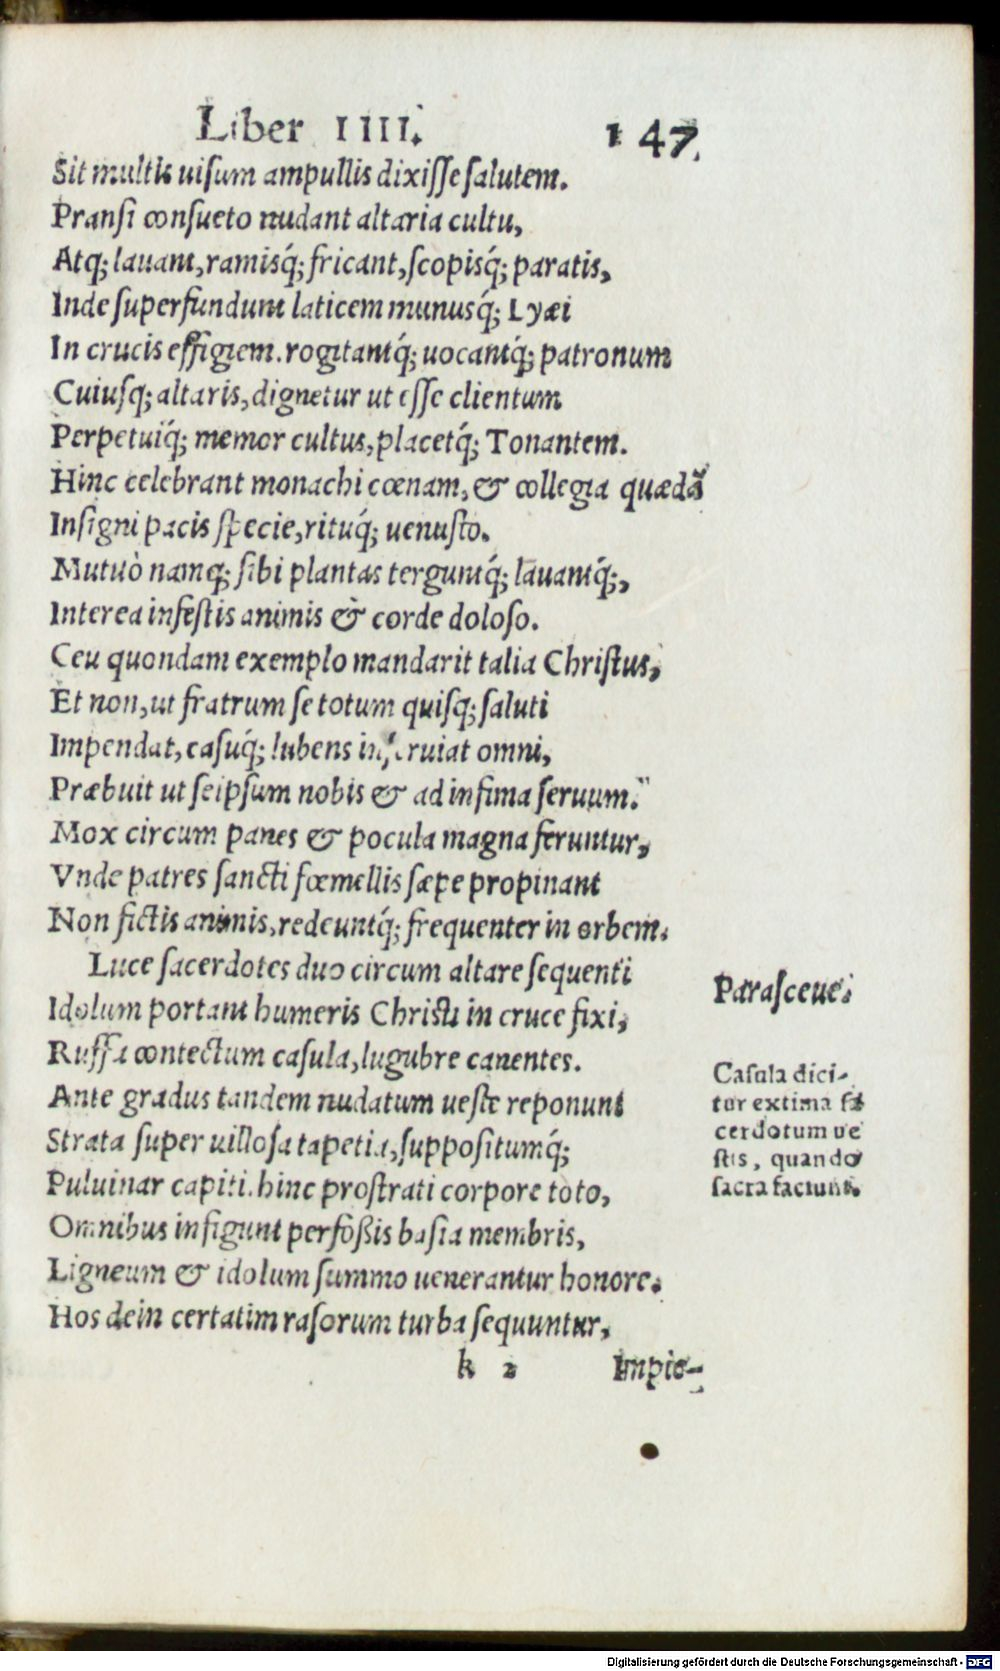 Liber IIII. 147.
Sit multis uisum ampullis dixisse salutem.
Pransi consueto nudant altaria cultu,
Atq́; lauant, ramisq́; fricant, scopisq́; paratis,
Inde superfundunt laticem munusq́; Lyæi
In crucis effigiem. rogitantq́; uocantq́; patronum
Cuiusq; altaris, dignetur ut esse clientum
Perpetuiq́; memor cultus, placetq́; Tonantem.
Hinc celebrant monachi cœnam, & collegia quædã
Insigni pacis specie, rituq́; uenusto.
Mutuò namq; sibi plantas terguntq́; lauantq́;,
Interea infestis animis & corde doloso.
Ceu quondam exemplo mandarit talia Christus,
Et non, ut fratrum se totum quisq; saluti
Impendat, casuq́; lubens inseruiat omni,
Præbuit ut seipsum nobis & ad infima seruum.
Mox circum panes & pocula magna feruntur,
Vnde patres sancti fœmellis sæpe propinant
Non fictis animis, redeuntq́; frequenter in orbem.
Luce sacerdotes duo circum altare sequenti
Idolum portant humeris Christi in cruce fixi,
Russa contectum casula, lugubre canentes.
Ante gradus tandem nudatum ueste reponunt
Strata super uillosa tapetia, suppositumq́;
Puluinar capiti. hinc prostrati corpore toto,
Omnibus infigunt perfoßis basia membris,
Ligneum & idolum summo uenerantur honore.
Hos dein certatim rasorum turba sequuntur,
k 2 Impie-
Parasceue.
Casula dici-
tur extima sa
cerdotum ue
stis, quando
sacra faciunt.
Digitalisierung gefördert durch die Deutsche Forschungsgemeinschaft - DFG